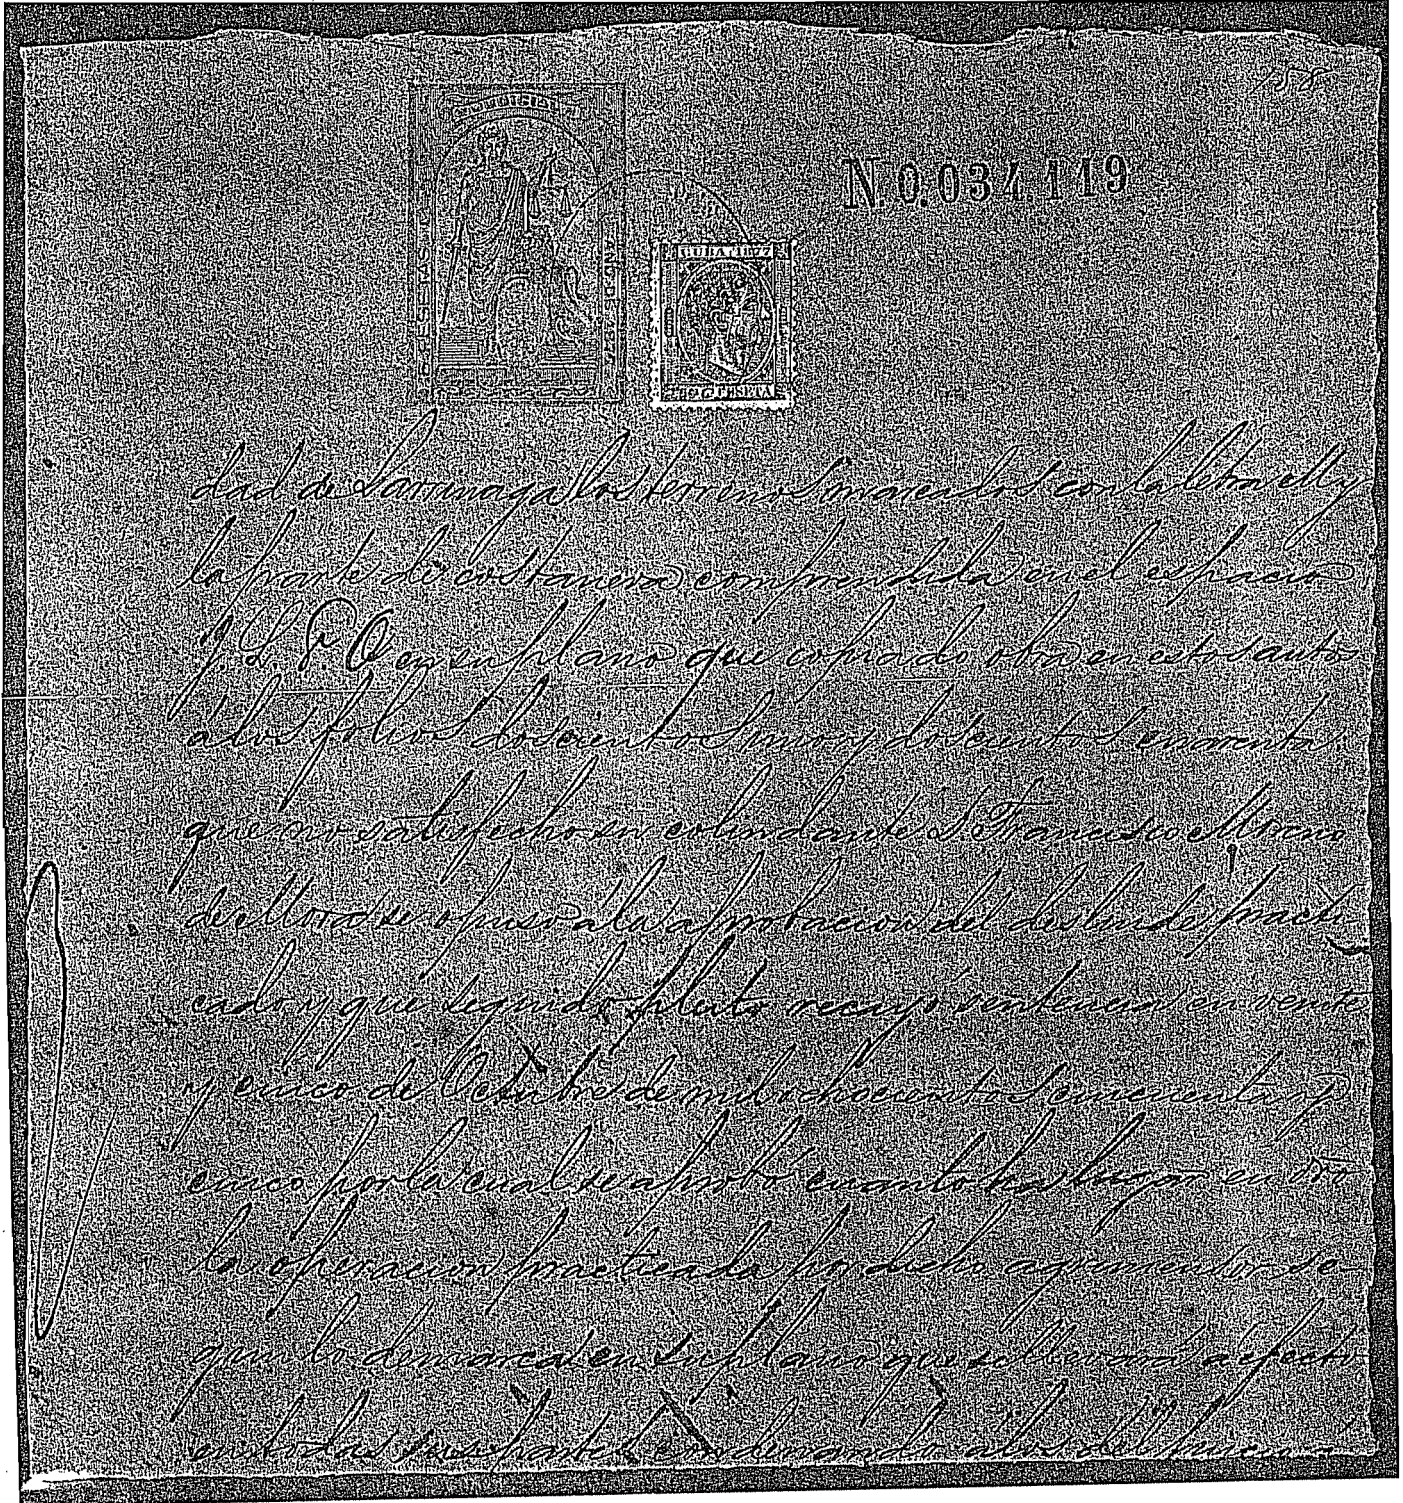 58
JUDICIAL
N 0.034.119
CUBA 1877
PESETAS
PESETA
dad de Larrinaga los terrenos marcados con la letra M y
la parte de costanera comprendida en el espacio
L. P. O en su plano que copiado obra en estos autos
á los folios doscientos uno y doscientos cuarenta
que no satisfecho su colindante D Francisco Moreno
de Mora se opuso á la aprobacion del deslinde practi-
cado y que seguido pleito recayó sentencia en veinte
y cinco de Octubre de mil ochocientos cincuenta y
cinco por la cual se aprobó cuanto ha lugar en dro
la operacion practicada por dicho agrimensor se-
gun lo demarca en su plano que se llevará á efecto
en todas sus partes condenando á los del